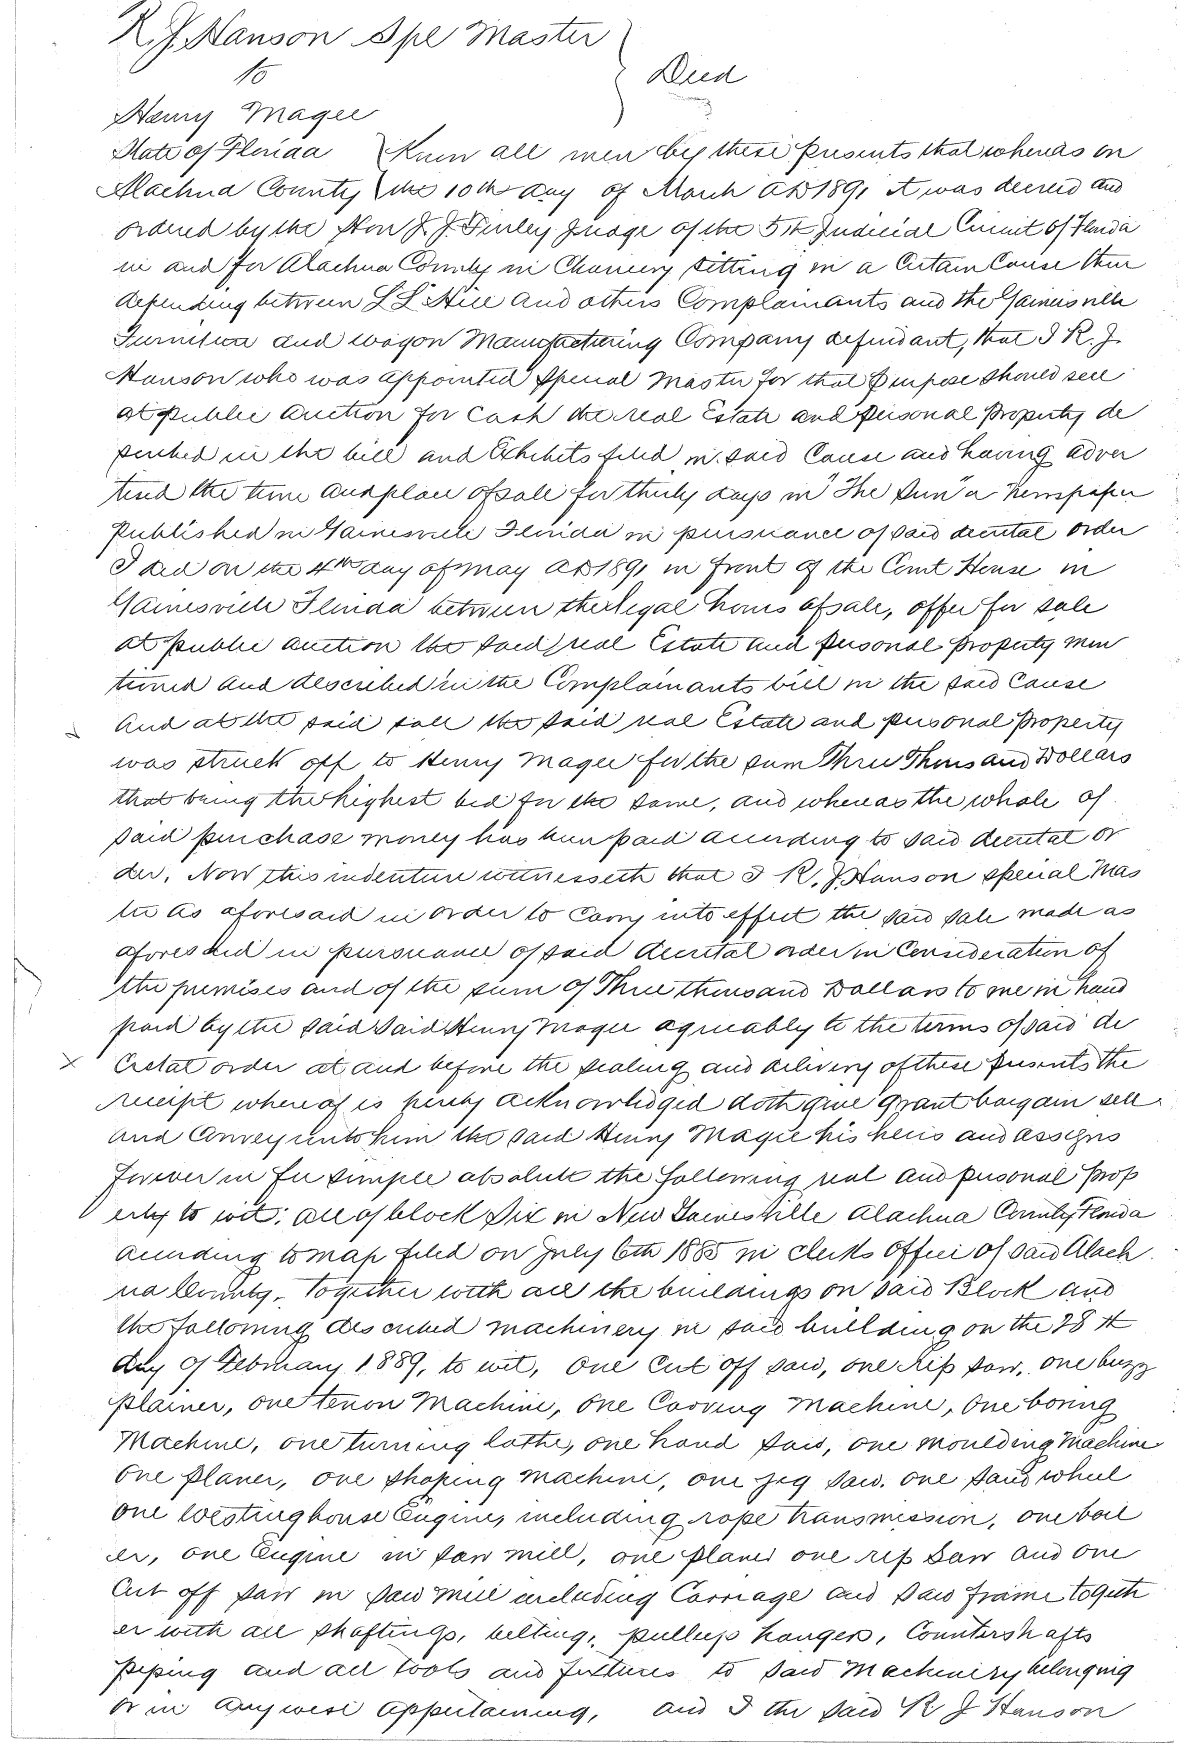 R. J. Hanson Spe Master
to
Deed
Henry Magee
State of Florida } Know all men by these presents that whereas on
Alachua County } the 10th day of March AD 1891 it was decreed and
ordered by the Hon J. J. Finley Judge of the 5th Judicial Circuit of Florida
in and for Alachua County in Chancery sitting in a Certain Cause then
depending between L L Hill and others Complainants and the Gainesville
Furniture and wagon Manufacturing Company defendant, that I R. J.
Hanson who was appointed special Master for that purpose should sell
at public auction for Cash the real Estate and personal Property de
scribed in the bill and Exhibits filed in said Cause and having adver
tised the time and place of sale for thirty days in "The Sun" a newspaper
published in Gainesville Florida in pursuance of said decretal order
I did on the 4th day of May AD 1891 in front of the Court House in
Gainesville Florida between the legal hours of sale, offer for sale
at public auction the said real Estate and personal property men
tioned and described in the Complainants bill in the said Cause
And at the said sale the said real Estate and personal Property
was struck off to Henry Magee for the sum Three Thousand Dollars
that being the highest bid for the same, and whereas the whole of
said purchase money has been paid according to said decretal or
der. Now this indenture witnesseth that I R. J. Hanson special Mas
ter as aforesaid in order to carry into effect the said sale made as
aforesaid in pursuance of said decretal order in Consideration of
the premises and of the sum of Three thousand Dollars to me in hand
paid by the said said Henry Magee agreeably to the terms of said de
cretal order at and before the sealing and delivery of these presents the
receipt whereof is hereby acknowledged doth give grant bargain sell
and Convey unto him the said Henry Magee his heirs and assigns
forever in fee simple absolute the following real and personal prop
erty to wit; all of block Six in New Gainesville Alachua County Florida
according to map filed on July 6th 1885 in clerks office of said Alach
ua County. Together with all the buildings on said Block and
the following described machinery in said building on the 28th
day of February 1889, to wit, one cut off saw, one rip saw, one buzz
plainer, one tenon Machine, one Carving Machine, one boring
Machine, one turning lathe, one hand saw, one moulding machine
one planer, one shaping machine, one jig saw. one sand wheel
one Westinghouse Engine, including rope transmission, one boil
er, one Engine in saw mill, one planer one rip saw and one
cut off saw in saw mill including Carriage and saw frame togeth
er with all shaftings, belting, pulleys hangers, Countershafts
piping and all tools and fixtures to said machinery belonging
or in anywise appertaining, and I the said R J Hanson